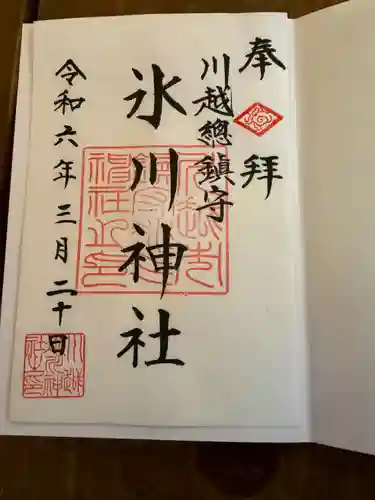 奉拜
川越總鎮守
氷川神社
令和六年三月二十日